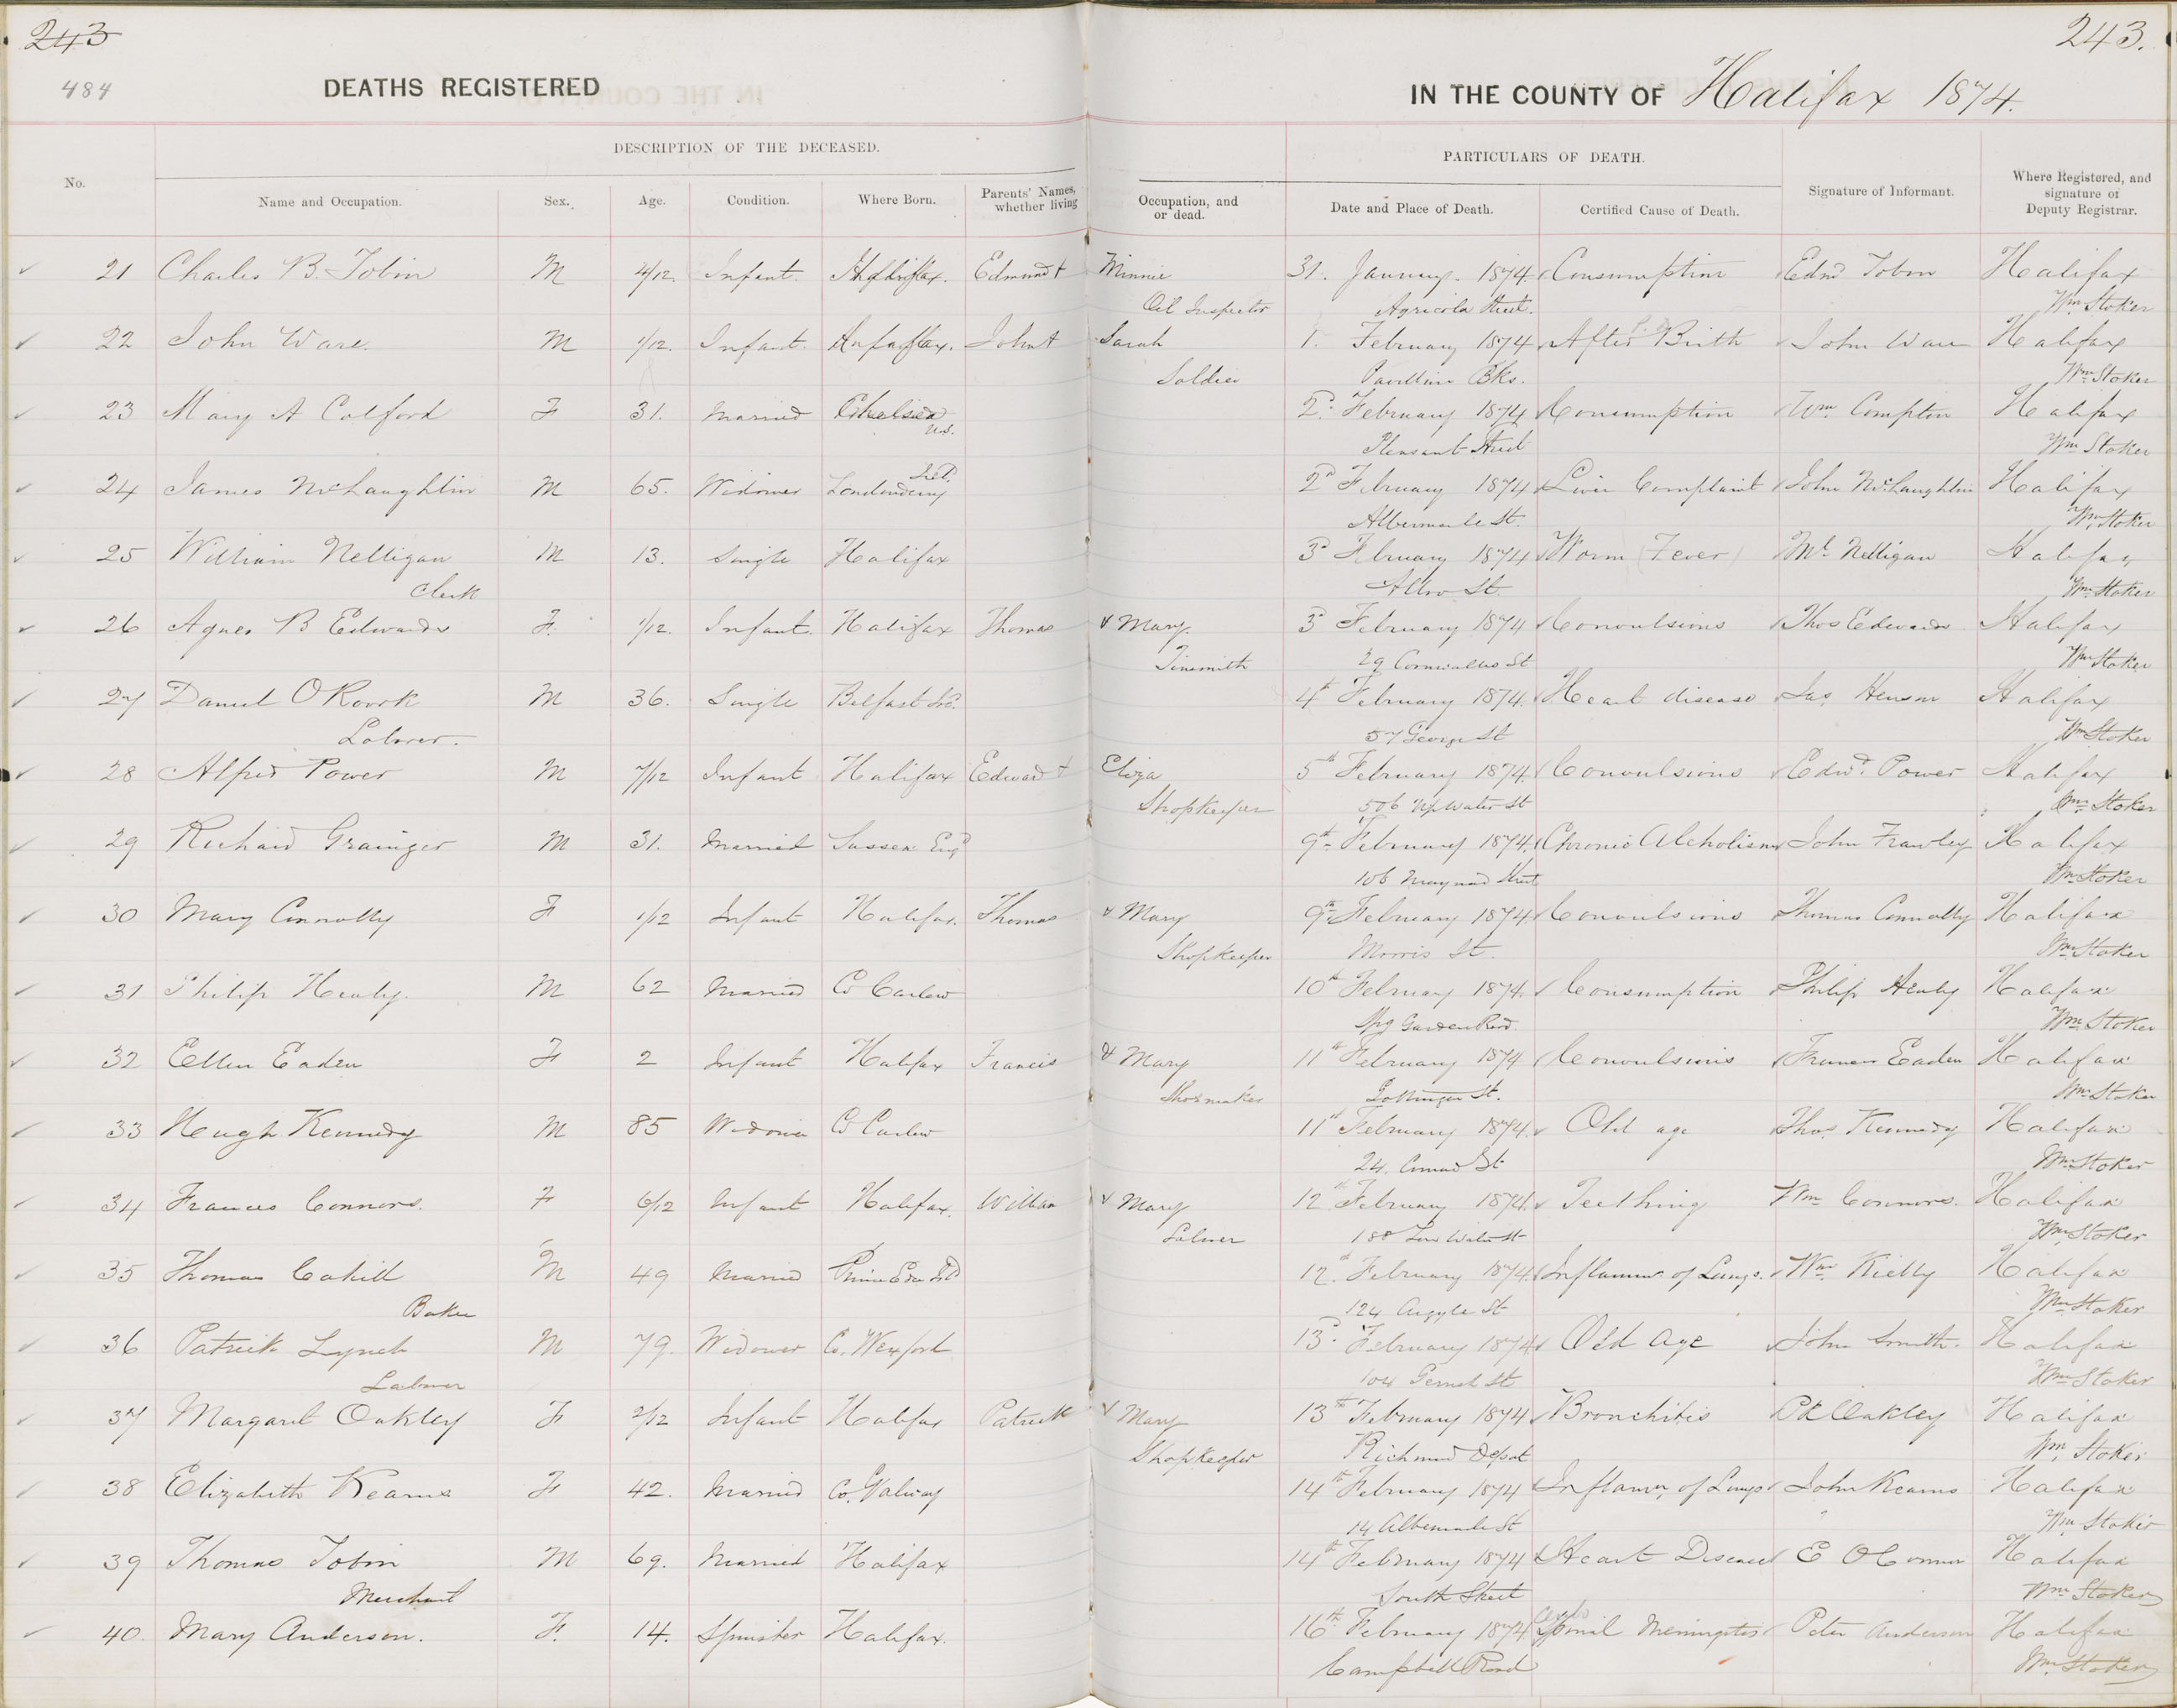 243
243.
484
DEATHS REGISTERED
IN THE COUNTY OF Halifax 1874.
DESCRIPTION OF THE DECEASED.
PARTICULARS OF DEATH.
No.
Name and Occupation.
Sex.
Age.
Condition.
Where Born.
Parents' Names, whether living
Occupation, and or dead.
Date and Place of Death.
Certified Cause of Death.
Signature of Informant.
Where Registered, and signature of Deputy Registrar.
21 Charles B. Tobin M 4/12. Infant. Halifax. Edmund & Minnie 31. January. 1874. Consumption Edmd Tobin Halifax
Oil Inspector Agricola Street. Wm Stoker
22 John Ware. M 1/12. Infant. Halifax. John & Sarah 1. February 1874 After Birth John Ware Halifax
Soldier Pavillion Bks. Wm Stoker
23 Mary A Colford F 31. Married Chelsea 2d February 1874 Consumption Wm Compton Halifax
U.S. Pleasant Street Wm Stoker
24 James McLaughlin M 65. Widower Londonderry Irel. 2d February 1874 Liver Complaint John McLaughlin Halifax
Albermarle St. Wm Stoker
25 William Nelligan M 13. Single Halifax 3d February 1874 Worm (Fever) Ml. Nelligan Halifax
Clerk St. Wm Stoker
26 Agnes B Edwards F. 1/12. Infant. Halifax Thomas & Mary. 3d February 1874 Convulsions Thos Edwards Halifax
Tinsmith 29 Cornwallis St Wm Stoker
27 Daniel O'Roork M 36. Single Belfast Ire. 4th February 1874. Heart disease Jas. Halifax
Laborer. 57 George St Wm Stoker
28 Alfred Power M 7/12 Infant Halifax Edward & Eliza 5th February 1874. Convulsions Edwd. Power Halifax
Shopkeeper 506 Up Water St Wm Stoker
29 Richard Grainger M 31. Married Sussex Engd 9th February 1874. Chronic Alcholism John Frawley Halifax
106 Maynard Street Wm Stoker
30 Mary Connolly F 1/12 Infant Halifax. Thomas & Mary 9th February 1874 Convulsions Thomas Connolly Halifax
Shopkeeper Morris St. Wm Stoker
31 Philip Healy. M 62 Married Co Carlow 10th February 1874. Consumption Philip Healy Halifax
Spg Garden Road. Wm Stoker
32 Ellen Eaden F 2 Infant Halifax Francis & Mary 11th February 1874 Convulsions Frances Eaden Halifax
Shoemaker Gottingen St. Wm Stoker
33 Hugh Kennedy M 85 Widower Co Carlow 11th February 1874. Old age Thos. Kennedy Halifax
24. Cunard St Wm Stoker
34 Frances Connors. F 6/12 Infant Halifax. William & Mary 12th February 1874. Teething Wm Connors. Halifax
Laborer 188 Low Water St Wm Stoker
35 Thomas Cahill M 49 Married Prince Edw Isd 12th February 1874. Inflammn. of Lungs. Wm. Kielly Halifax
Baker 124 Argyle St Wm Stoker
36 Patrick Lynch M 79. Widower Co. Wexford 13d. February 1874 Old Age John Smith. Halifax
Laborer 104 St Wm Stoker
37 Margaret Oakley F 2/12 Infant Halifax Patrick & Mary 13th February 1874 Bronchitis Pk Oakley Halifax
Shopkeeper Richmond Depot Wm. Stoker
38 Elizabeth Kearns F 42. Married Co. Galway 14th February 1874 Inflamn. of Lungs John Kearns Halifax
14 Albemarle St Wm Stoker
39 Thomas Tobin M 69. Married Halifax 14th February 1874 Heart Disease E O'Connor Halifax
Merchant South Street Wm Stoker
40. Mary Anderson. F. 14. Spinster Halifax. 16th February 1874 Cerebro Spinal Meningitis Peter Anderson Halifax
Campbell Road Wm Stoker